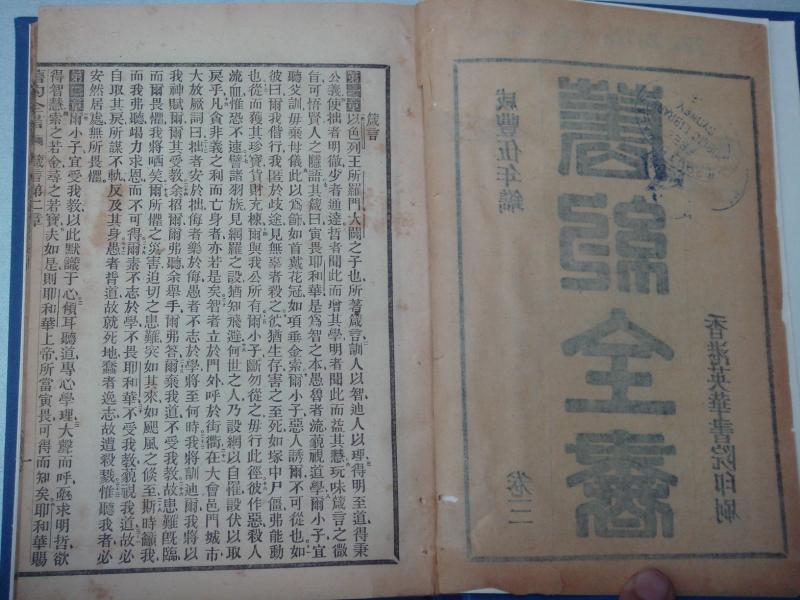 香港英華書院印刷
舊約全書
卷三
咸豐伍年鐫
箴言
第一章以色列王所羅門大闢之子也所著箴言訓人以智迪人以理得明至道得秉
公義使拙者明徹少者通達哲者聞此而增其學明者聞此而益其慧玩味箴言之微
旨可悟賢人之隱語其箴曰寅畏耶和華是爲智之本愚魯者流藐視道學爾小子宜
聽父訓毋棄母儀此以爲飾如首戴花冠如項垂金索爾小子惡人誘爾不可從也如
彼曰爾我偕行我匿於歧途見無辜者殺之彼猶生存害之至死如塚中尸僵弗能動
也從而獲其珍寶貨財充櫝爾與我公所有爾小子斷勿從之毋行此徑彼作惡殺人
流血惟恐不速譬諸羽族見網羅之設猶知飛避何世之人乃設網以自罹設伏以取
戾乎凡貪非義之利而亡身者亦若是矣智者立於門外呼於街衢在大會邑門城市
大放厥詞曰拙者安於拙侮者樂於侮愚者不志於學將至何時我將訓迪爾我將以
我神賦爾爾其受教余招爾爾弗聽余舉手爾弗答爾棄我道不受我教故患難旣臨
而爾畏懼我將哂笑爾所懼之災害迫切之患難突如其來如颶風之倐至斯時籲我
而我弗聽竭力求恩而不可得爾素不志於學不畏耶和華不受我教藐視我道故必
自取其戾所謀不軌反及其身愚者背道故就死地蠢者逸志故遭殺戮惟聽我者必
安然居處無所畏懼
第二章爾小子宜受我教以此默識于心傾耳聽道專心學理大聲而呼亟求明哲欲
得智慧索之若金尋之若寶夫如是則耶和華上帝所當寅畏可得而知矣耶和華賜
舊約全書 箴言第二章 一